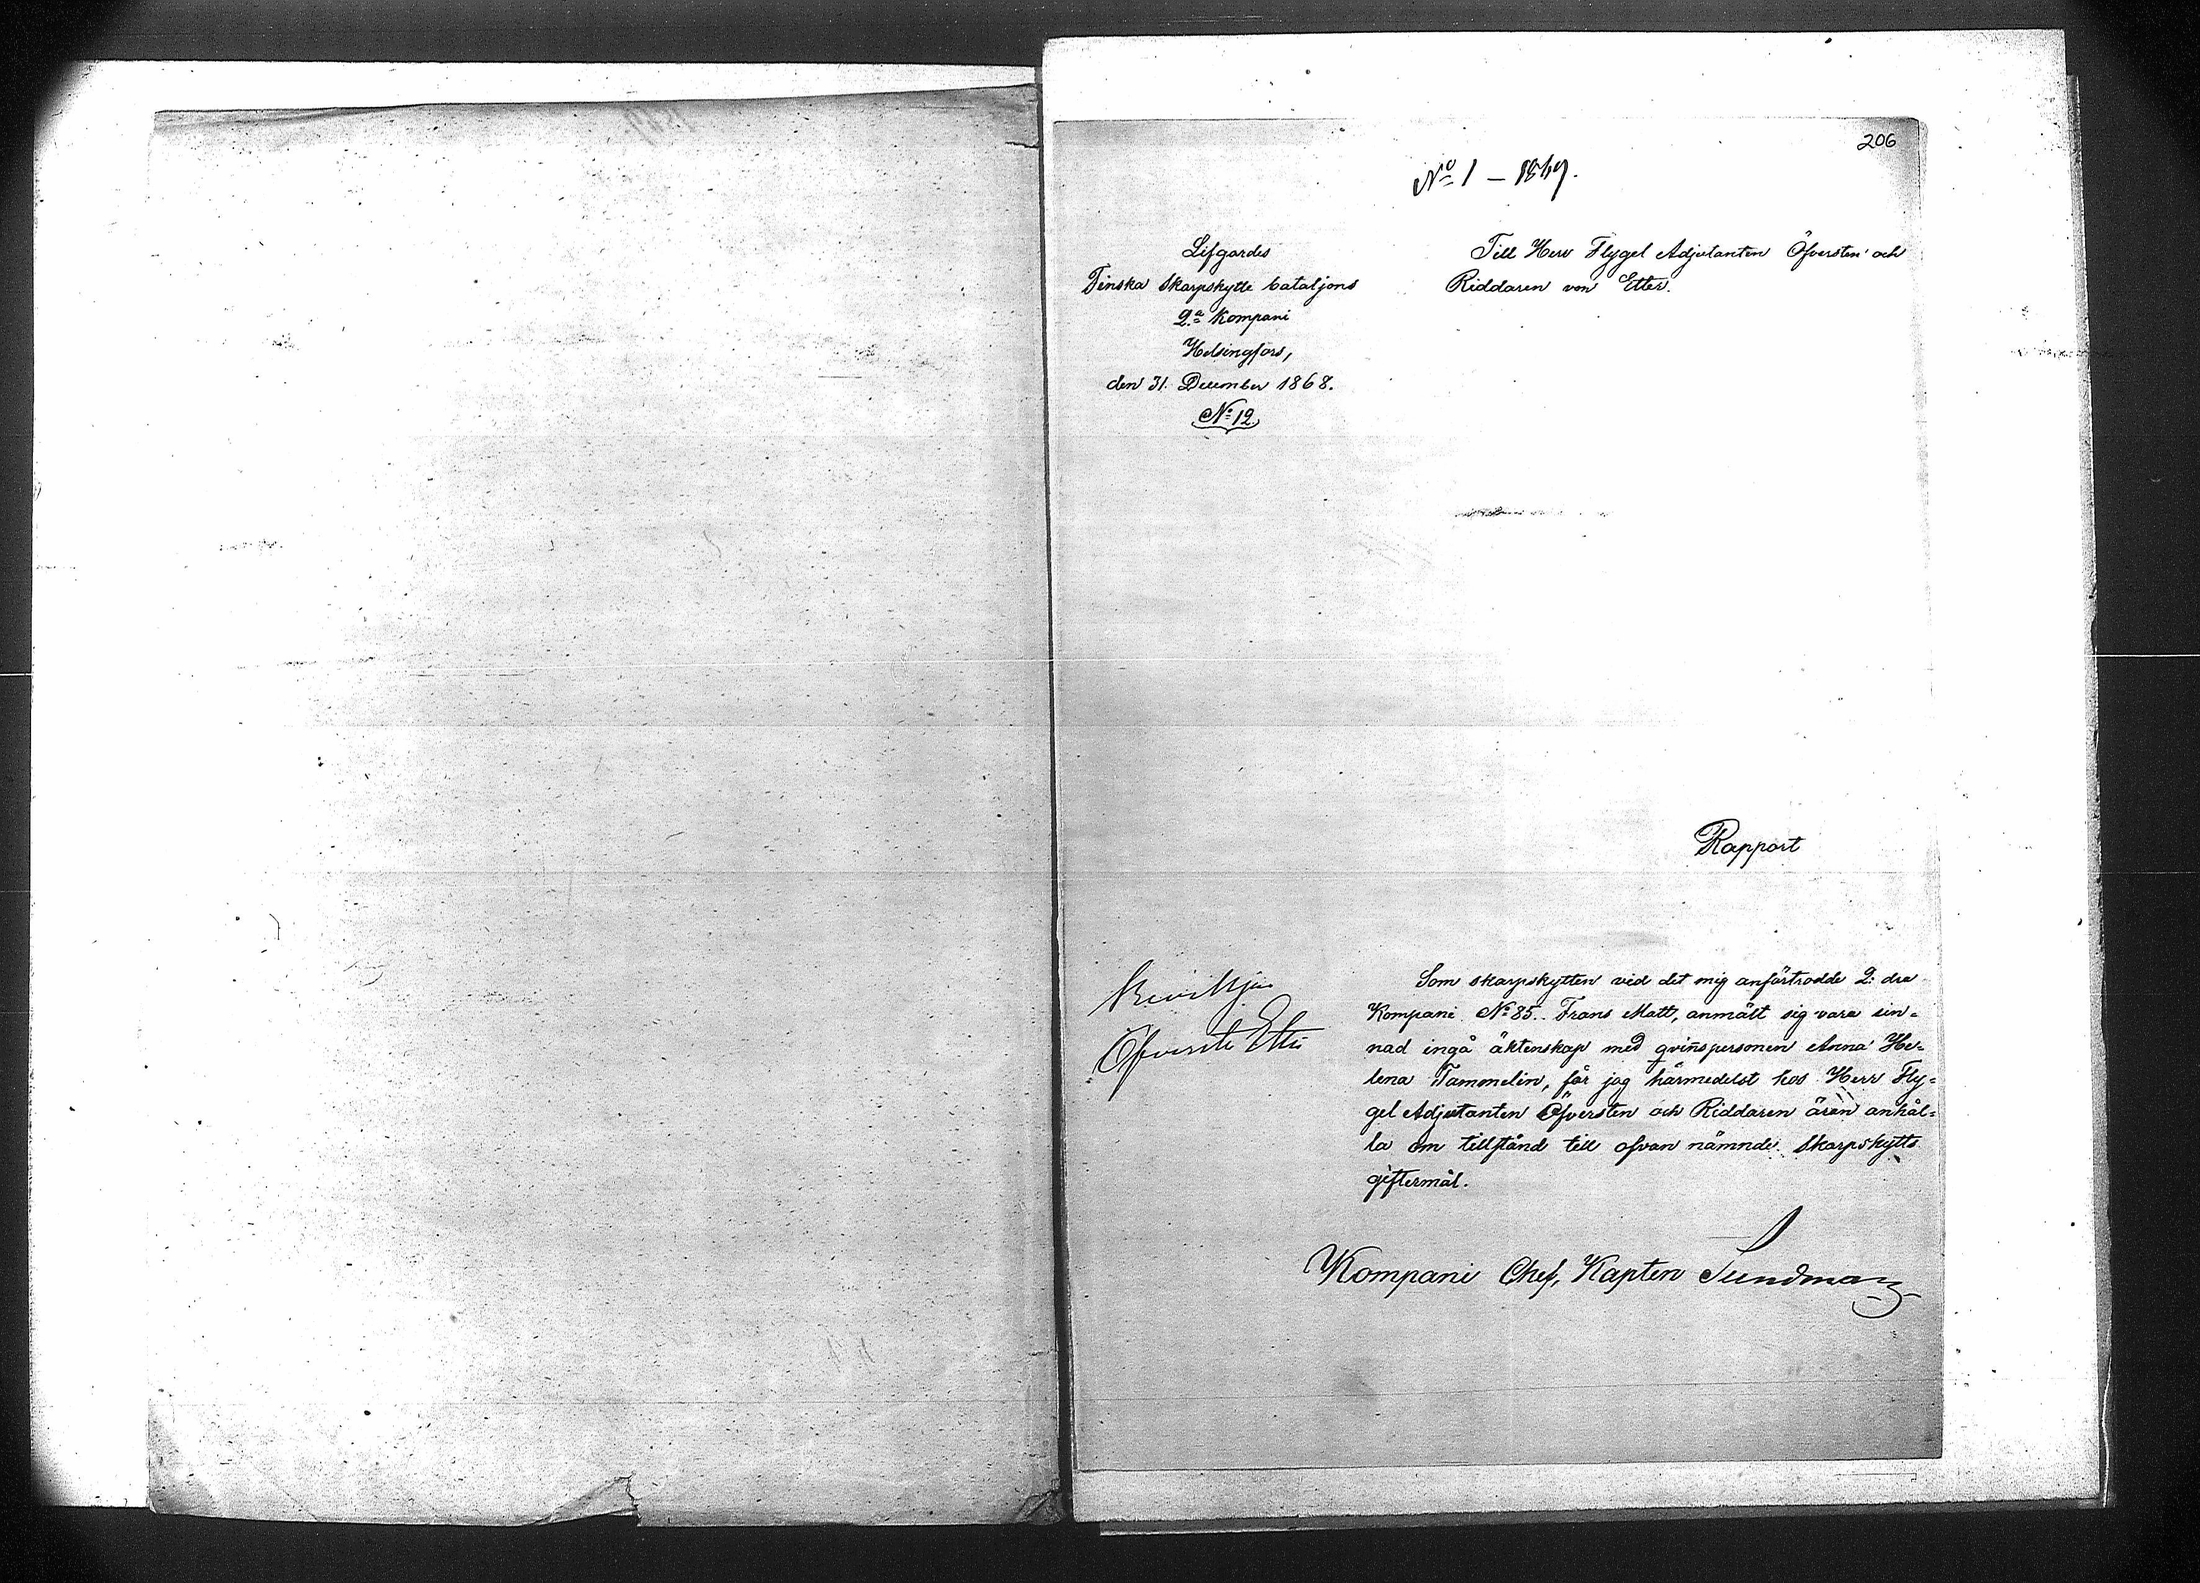 206
No 1 – 1869.
Lifgardes
Finska Skarpskytte bataljons
2a Kompani
Helsingfors,
den 31. December 1868.
No 12.
Till Herr Flygel Adjutanten Öfversten och
Riddaren von Etter.
Rapport
Beviljas
Öfverste Etter
Som skarpskytten vid det mig anförtrodde 2: dra
Kompani No 85. Frans Matt, anmält sig vara sin=
nad ingå äktenskap med qvinspersonen Anna He=
lena Tammelin, får jag härmedelst hos Herr Fly=
gel Adjutanten Öfversten och Riddaren äran anhål=
la om tillstånd till ofvan nämnde Skarpskytts
giftermål.
Kompani Chef, Kapten Sundman